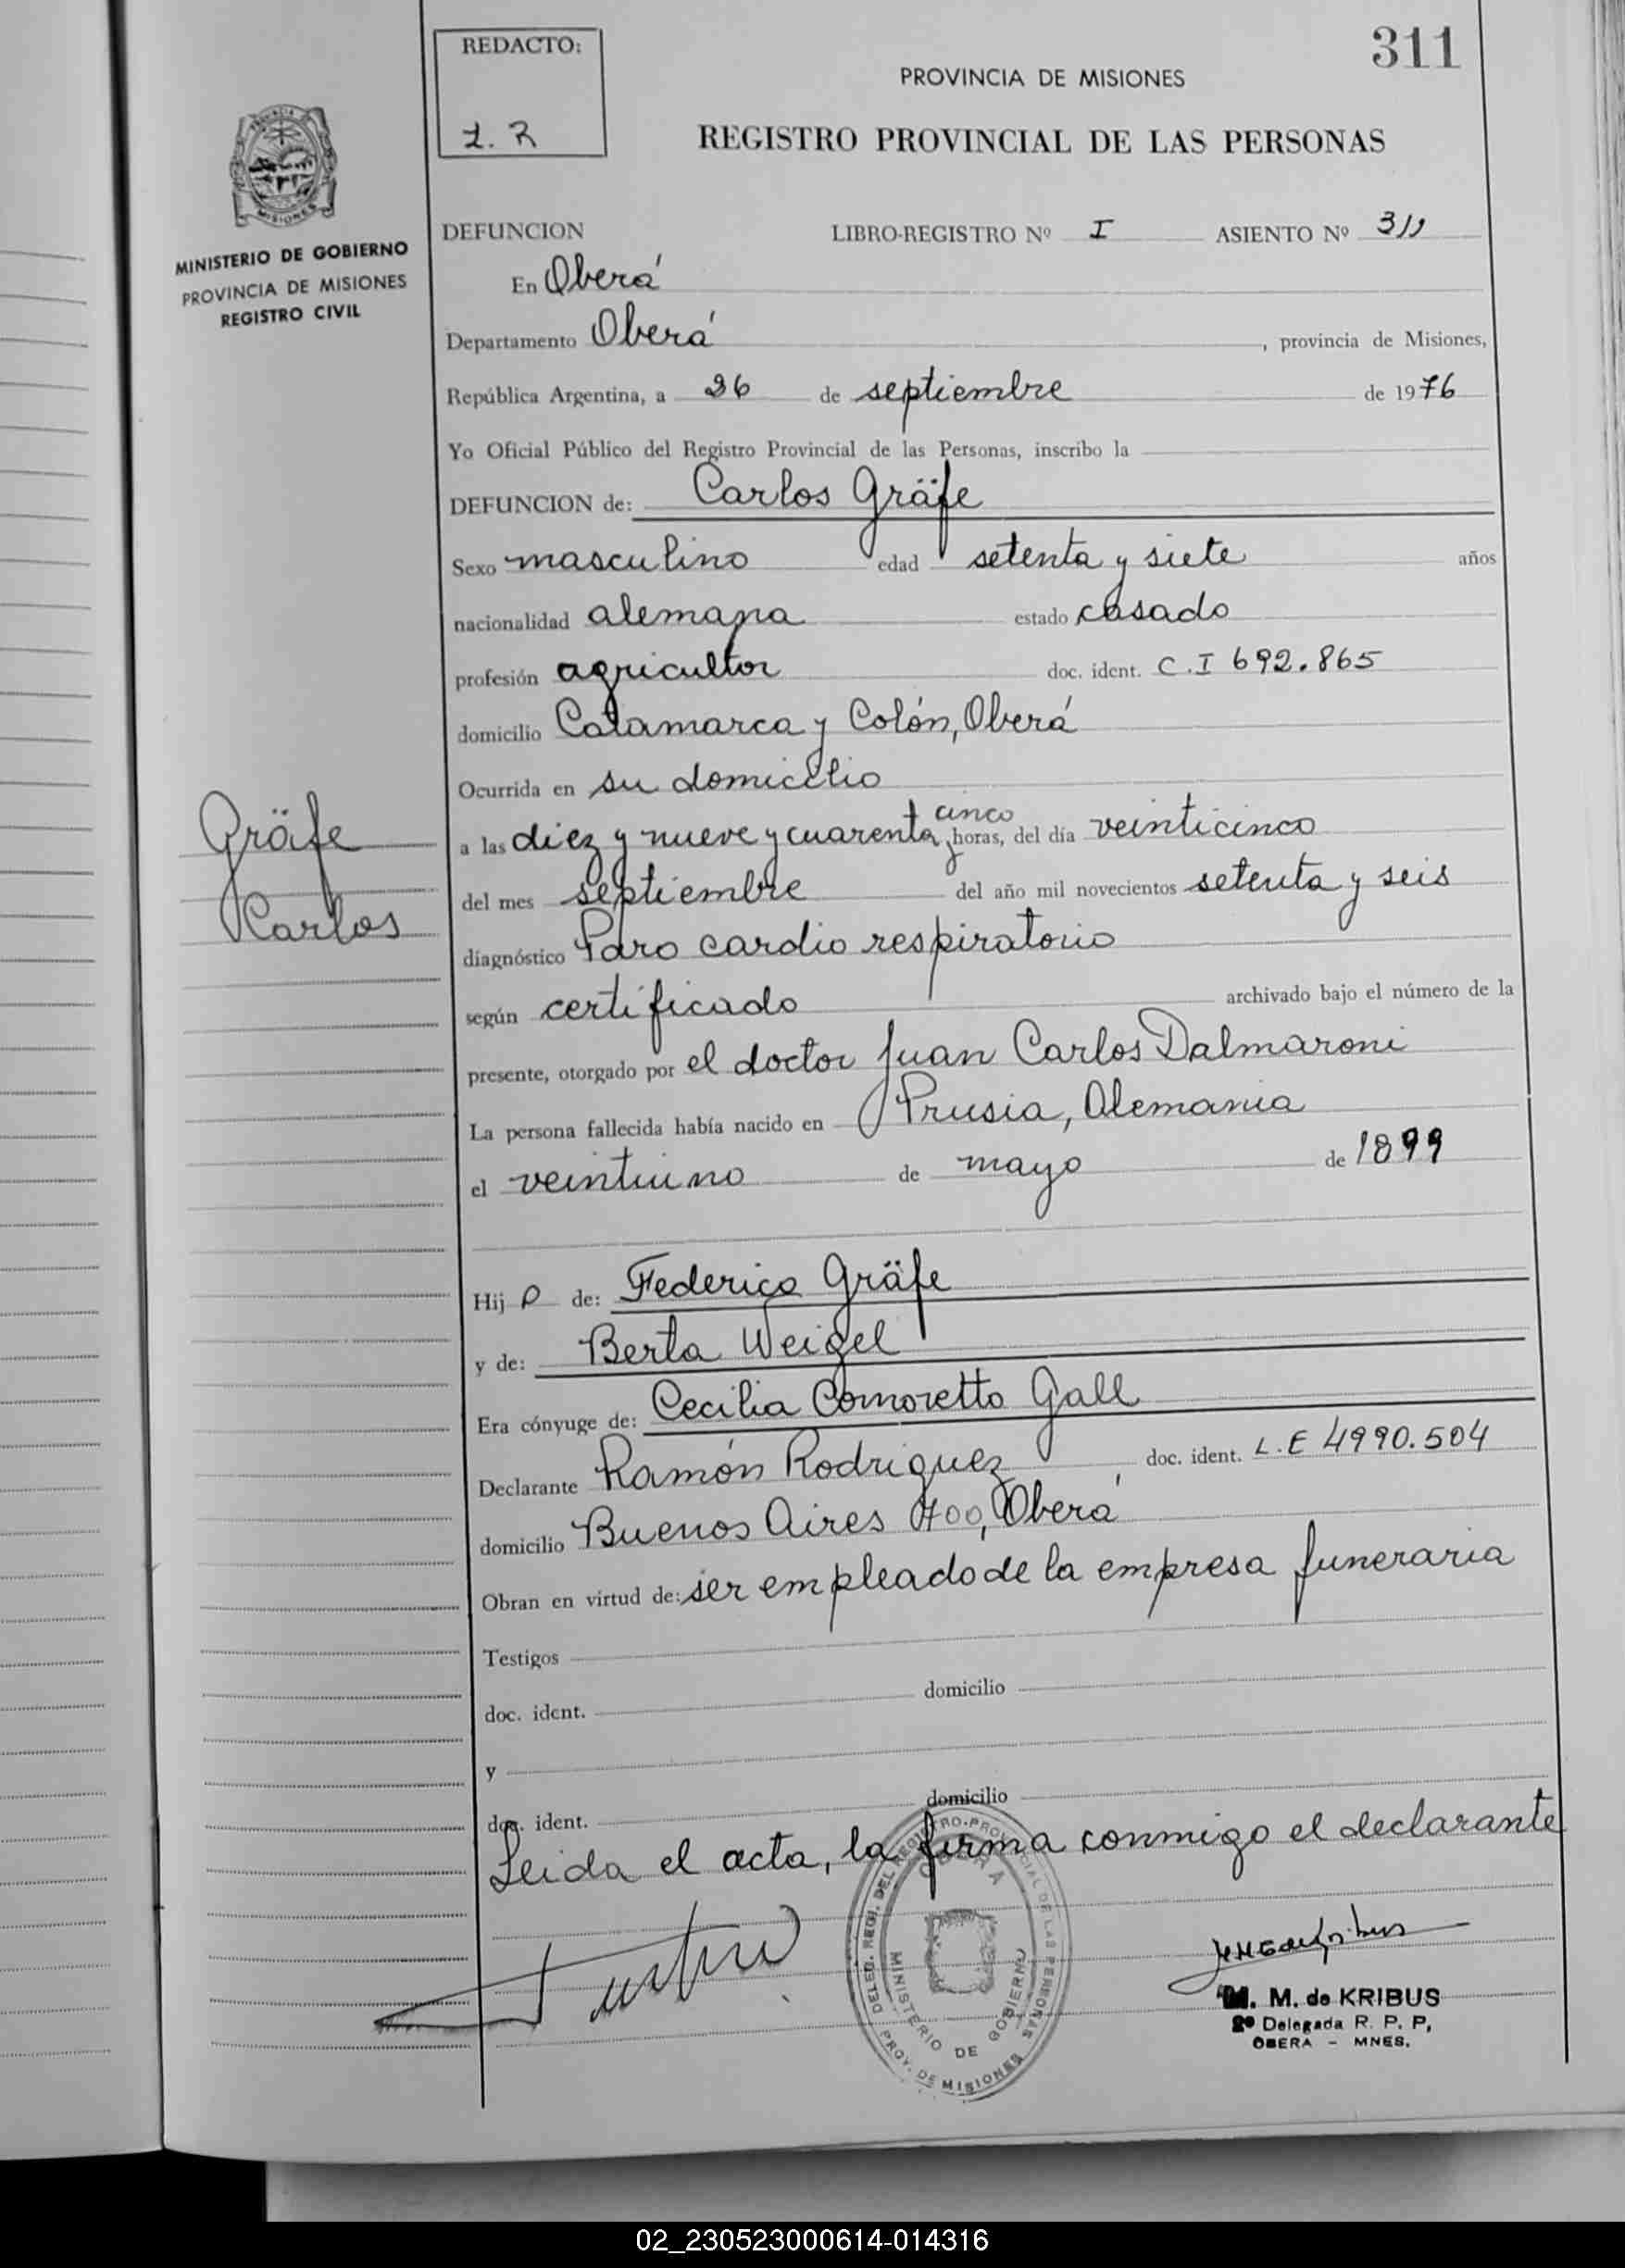 311
REDACTO:
PROVINCIA DE MISIONES
REGISTRO PROVINCIAL DE LAS PERSONAS
PROVINCIA
MISIONES
MINISTERIO DE GOBIERNO
PROVINCIA DE MISIONES
REGISTRO CIVIL
DEFUNCION LIBRO-REGISTRO Nº I ASIENTO Nº 311
En Oberá
Departamento Oberá, provincia de Misiones,
República Argentina, a 26 de septiembre de 1976
Yo Oficial Público del Registro Provincial de las Personas, inscribo la
DEFUNCION de: Carlos Gräfe
Sexo masculino edad setenta y siete años
nacionalidad alemana estado casado
profesión agricultor doc. ident. C.I 692.865
domicilio Catamarca y Colón, Oberá
Ocurrida en su domicilio
a las diez y nueve y cuarenta y cinco horas, del día veinticinco
del mes septiembre del año mil novecientos setenta y seis
diagnóstico Paro cardio respiratorio
según certificado archivado bajo el número de la
presente, otorgado por el doctor Juan Carlos Dalmaroni
La persona fallecida había nacido en Prusia, Alemania
el veintiuno de mayo de 1899
Gräfe
Carlos
Hijo de: Federico Gräfe
y de: Berta Weigel
Era cónyuge de: Cecilia Comoretto Gall
Declarante Ramón Rodriguez doc. ident. L.E 4990.504
domicilio Buenos Aires 400, Oberá
Obran en virtud de: ser empleado de la empresa funeraria
Testigos
doc. ident. domicilio
y
doc. ident. domicilio
Leida el acta, la firma conmigo el declarante
DELEG. REGI. DEL REGISTRO PROVINCIAL DE LAS PERSONAS
OBERA
MINISTERIO DE GOBIERNO
PROV. DE MISIONES
M. M. de KRIBUS
2º Delegada R. P. P,
OBERA - MNES.
02_230523000614-014316